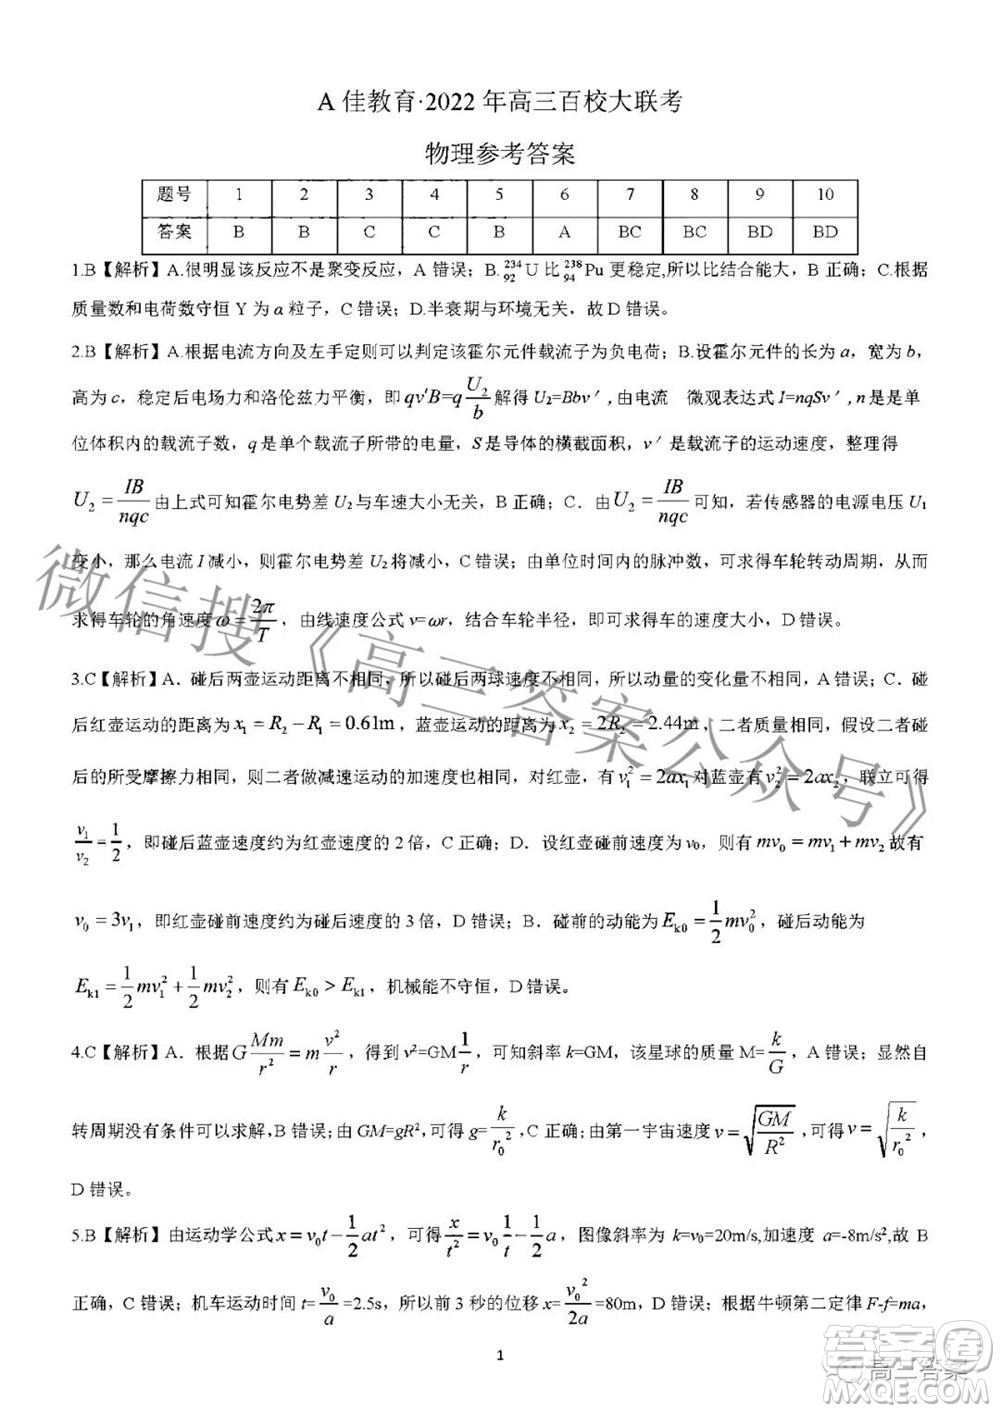 A 佳教育·2022 年高三百校大联考
物理参考答案
题号 1 2 3 4 5 6 7 8 9 10
答案 B B C C B A BC BC BD BD
1.B【解析】A.很明显该反应不是聚变反应，A 错误；B.²³⁴₉₂U 比 ²³⁸₉₄Pu 更稳定,所以比结合能大，B 正确；C.根据
质量数和电荷数守恒 Y 为 α 粒子，C 错误；D.半衰期与环境无关，故 D 错误。
2.B【解析】A.根据电流方向及左手定则可以判定该霍尔元件载流子为负电荷；B.设霍尔元件的长为 a，宽为 b，
高为 c，稳定后电场力和洛伦兹力平衡，即 qv′B=q U₂/b 解得 U₂=Bbv′,由电流 微观表达式 I=nqSv′,n 是是单
位体积内的载流子数，q 是单个载流子所带的电量，S 是导体的横截面积，v′是载流子的运动速度，整理得
U₂=IB/nqc 由上式可知霍尔电势差 U₂ 与车速大小无关，B 正确；C．由 U₂=IB/nqc 可知，若传感器的电源电压 U₁
变小，那么电流 I 减小，则霍尔电势差 U₂ 将减小，C 错误；由单位时间内的脉冲数，可求得车轮转动周期，从而
求得车轮的角速度 ω=2π/T，由线速度公式 v=ωr，结合车轮半径，即可求得车的速度大小，D 错误。
3.C【解析】A．碰后两壶运动距离不相同，所以碰后两球速度不相同，所以动量的变化量不相同，A错误；C．碰
后红壶运动的距离为 x₁=R₂−R₁=0.61m，蓝壶运动的距离为 x₂=2R₂=2.44m，二者质量相同，假设二者碰
后的所受摩擦力相同，则二者做减速运动的加速度相同，对红壶，有 v₁²=2ax₁对蓝壶有 v₂²=2ax₂，联立可得
v₁/v₂=1/2，即碰后蓝壶速度约为红壶速度的 2 倍，C 正确；D．设红壶碰前速度为 v₀，则有 mv₀=mv₁+mv₂ 故有
v₀=3v₁，即红壶碰前速度约为碰后速度的 3 倍，D 错误；B．碰前的动能为 Eₖ₀=1/2 mv₀²，碰后动能为
Eₖ₁=1/2 mv₁²+1/2 mv₂²，则有 Eₖ₀>Eₖ₁，机械能不守恒，D 错误。
4.C【解析】A．根据 G Mm/r²=m v²/r，得到 v²=GM 1/r，可知斜率 k=GM，该星球的质量 M=k/G，A 错误；显然自
转周期没有条件可以求解,B 错误；由 GM=gR²,可得 g=k/r₀²,C 正确；由第一宇宙速度 v=√(GM/R²),可得 v=√(k/r₀²)，
D 错误。
5.B【解析】由运动学公式 x=v₀t−1/2 at²，可得 x/t²=v₀ 1/t−1/2 a，图像斜率为 k=v₀=20m/s,加速度 a=-8m/s²,故 B
正确，C 错误；机车运动时间 t=v₀/a=2.5s，所以前 3 秒的位移 x=v₀²/2a=80m，故 A 错误；根据牛顿第二定律 F-f=ma，
1
微信搜《高三答案公众号》
答案圈
高三答案
MXQE.COM